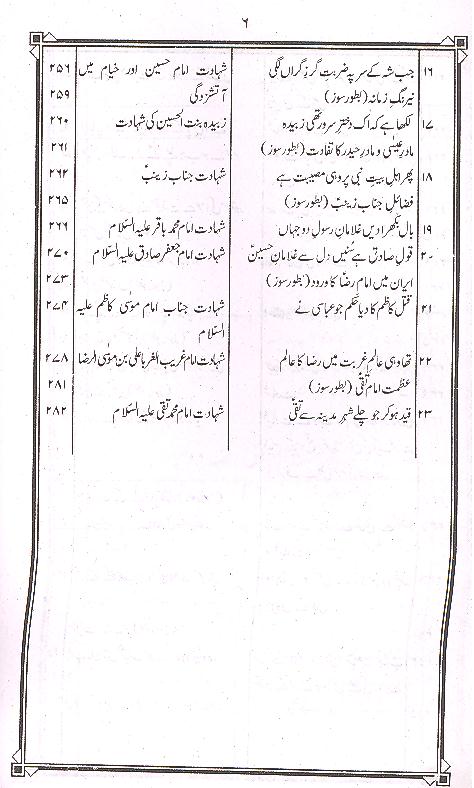 ۶
۱۶ جب شہ کے سر پہ ضربتِ گرزِ گراں لگی شہادت امام حسین اور خیام میں ۲۵۶
نیرنگِ زمانہ (بطور سوز) آتشزدگی ۲۵۹
۱۷ لکھا ہے کہ اک دخترِ سرور تھی زبیدہ زبیدہ بنت الحسین کی شہادت ۲۶۰
مادرِ عیسٰی و مادرِ حیدر کا تفاوت (بطور سوز) ۲۶۱
۱۸ پھر اہلِ بیتِ نبی پر وہی مصیبت ہے شہادت جناب زینبؑ ۲۶۲
فضائلِ جناب زینبؑ (بطور سوز) ۲۶۵
۱۹ بال بکھرا دیں غلامانِ رسولِ دو جہاں شہادت امام محمد باقر علیہ السّلام ۲۶۶
۲۰ قولِ صادق ہے سُنیں دل سے غلامانِ حسینؑ شہادت امام جعفر صادق علیہ السّلام ۲۷۰
ایران میں امام رضاؑ کا ورود (بطور سوز) ۲۷۳
۲۱ قتل کاظم کا دیا حکم جو عباسی نے شہادت جناب امام موسٰی کاظم علیہ ۲۷۴
السّلام
۲۲ تھا وہی عالمِ غربت میں رضا کا عالم شہادت امام غریب الغربا علی بن موسٰی الرضا ۲۷۸
عظمت امام تقیؑ (بطور سوز) ۲۸۱
۲۳ قید ہو کر جو چلے شہرِ مدینہ سے تقیؑ شہادت امام محمد تقی علیہ السّلام ۲۸۲